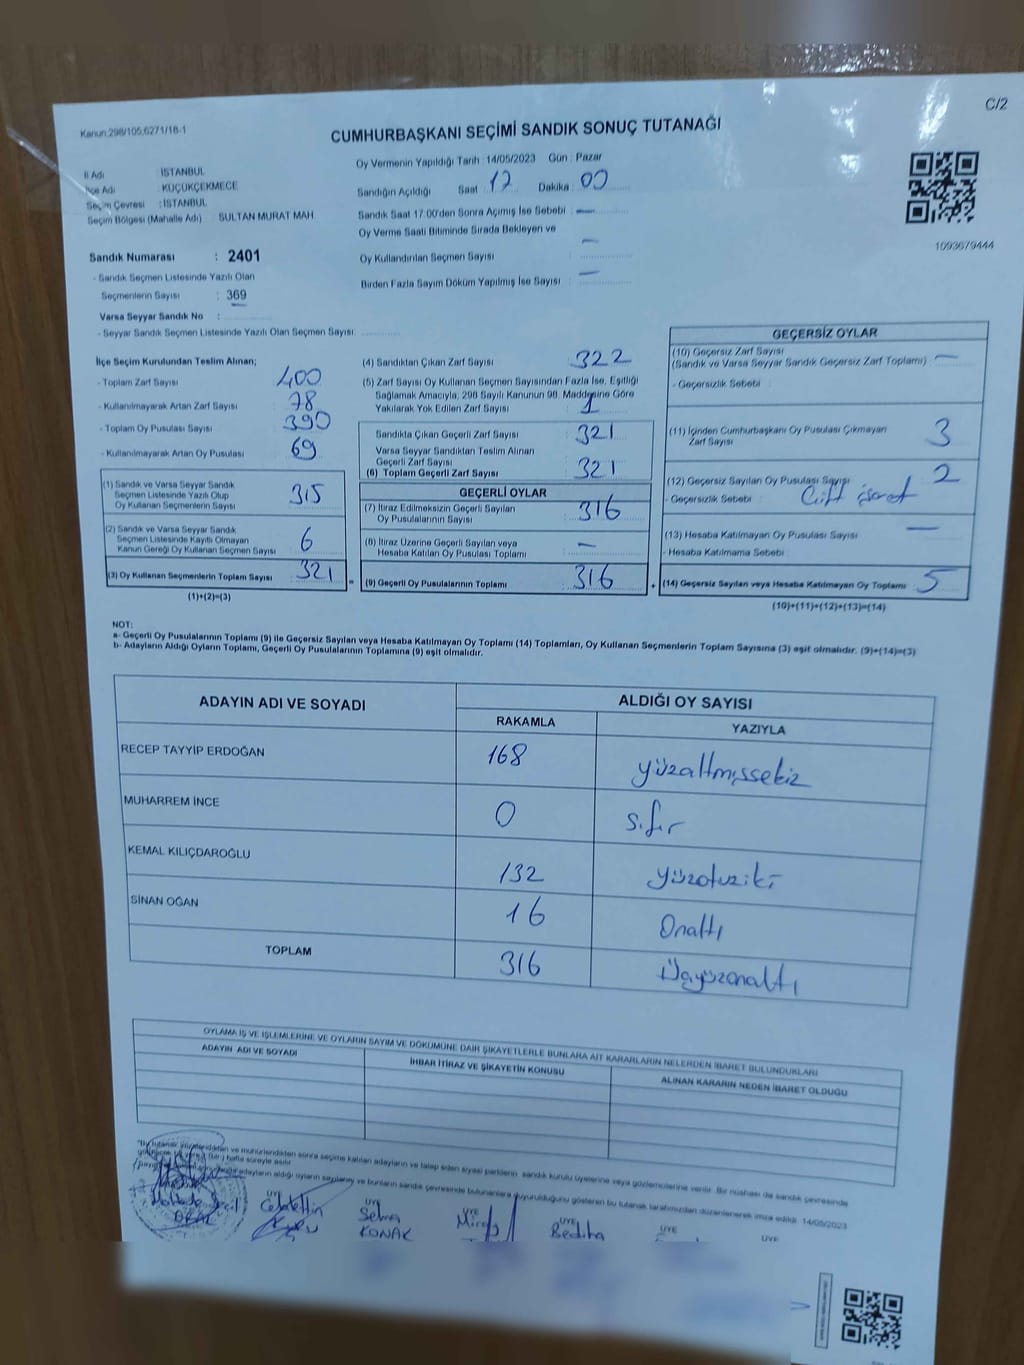 C/2
Kanun:298/105,6271/18-1
CUMHURBAŞKANI SEÇİMİ SANDIK SONUÇ TUTANAĞI
İl Adı : İSTANBUL
İlçe Adı : KÜÇÜKÇEKMECE
Seçim Çevresi : İSTANBUL
Seçim Bölgesi (Mahalle Adı) SULTAN MURAT MAH.
Sandık Numarası : 2401
- Sandık Seçmen Listesinde Yazılı Olan
Seçmenlerin Sayısı : 369
Varsa Seyyar Sandık No :
- Seyyar Sandık Seçmen Listesinde Yazılı Olan Seçmen Sayısı:
Oy Vermenin Yapıldığı Tarih : 14/05/2023 Gün : Pazar
Sandığın Açıldığı Saat 17 Dakika 00
Sandık Saat 17:00'den Sonra Açımış İse Sebebi : —
Oy Verme Saati Bitiminde Sırada Bekleyen ve
Oy Kullandırılan Seçmen Sayısı : —
Birden Fazla Sayım Döküm Yapılmış İse Sayısı : —
1093679444
İlçe Seçim Kurulundan Teslim Alınan;
- Toplam Zarf Sayısı 400
- Kullanılmayarak Artan Zarf Sayısı 78
- Toplam Oy Pusulası Sayısı 390
- Kullanılmayarak Artan Oy Pusulası 69
(1) Sandık ve Varsa Seyyar Sandık
Seçmen Listesinde Yazılı Olup
Oy Kullanan Seçmenlerin Sayısı 315
(2) Sandık ve Varsa Seyyar Sandık
Seçmen Listesinde Kayıtlı Olmayan
Kanun Gereği Oy Kullanan Seçmen Sayısı 6
(3) Oy Kullanan Seçmenlerin Toplam Sayısı 321 =
(1)+(2)=(3)
(4) Sandıktan Çıkan Zarf Sayısı 322
(5) Zarf Sayısı Oy Kullanan Seçmen Sayısından Fazla İse, Eşitliği
Sağlamak Amacıyla, 298 Sayılı Kanunun 98. Maddesine Göre
Yakılarak Yok Edilen Zarf Sayısı : 1
Sandıkta Çıkan Geçerli Zarf Sayısı 321
Varsa Seyyar Sandıktan Teslim Alınan
Geçerli Zarf Sayısı
(6) Toplam Geçerli Zarf Sayısı 321
GEÇERLİ OYLAR
(7) İtiraz Edilmeksizin Geçerli Sayılan
Oy Pusulalarının Sayısı 316
(8) İtiraz Üzerine Geçerli Sayılan veya
Hesaba Katılan Oy Pusulası Toplamı : —
(9) Geçerli Oy Pusulalarının Toplamı 316 +
GEÇERSİZ OYLAR
(10) Geçersiz Zarf Sayısı
(Sandık ve Varsa Seyyar Sandık Geçersiz Zarf Toplamı) : —
- Geçersizlik Sebebi :
(11) İçinden Cumhurbaşkanı Oy Pusulası Çıkmayan
Zarf Sayısı 3
(12) Geçersiz Sayılan Oy Pusulası Sayısı 2
- Geçersizlik Sebebi : Çift işaret
(13) Hesaba Katılmayan Oy Pusulası Sayısı —
- Hesaba Katılmama Sebebi :
(14) Geçersiz Sayılan veya Hesaba Katılmayan Oy Toplamı 5
(10)+(11)+(12)+(13)=(14)
NOT:
a- Geçerli Oy Pusulalarının Toplamı (9) ile Geçersiz Sayılan veya Hesaba Katılmayan Oy Toplamı (14) Toplamları, Oy Kullanan Seçmenlerin Toplam Sayısına (3) eşit olmalıdır. (9)+(14)=(3)
b- Adayların Aldığı Oyların Toplamı, Geçerli Oy Pusulalarının Toplamına (9) eşit olmalıdır.
ADAYIN ADI VE SOYADI ALDIĞI OY SAYISI
RAKAMLA YAZIYLA
RECEP TAYYİP ERDOĞAN 168 yüzaltmışsekiz
MUHARREM İNCE 0 sıfır
KEMAL KILIÇDAROĞLU 132 yüzotuziki
SİNAN OĞAN 16 Onaltı
TOPLAM 316 Üçyüzonaltı
OYLAMA İŞ VE İŞLEMLERİNE VE OYLARIN SAYIM VE DÖKÜMÜNE DAİR ŞİKAYETLERLE BUNLARA AİT KARARLARIN NELERDEN İBARET BULUNDUKLARI
ADAYIN ADI VE SOYADI İHBAR İTİRAZ VE ŞİKAYETİN KONUSU ALINAN KARARIN NEDEN İBARET OLDUĞU
ve mühürlendikten sonra seçime katılan adayların ve talep eden siyasi partilerin sandık kurulu üyelerine veya gözlemcilerine verilir. Bir nüshası da sandık çevresinde
hafta süreyle asılır
adayların aldığı oyların sayılarını ve bunların sandık çevresinde bulunanlara duyurulduğunu gösteren bu tutanak tarafımızdan düzenlenerek imza edildi. 14/05/2023
ÜYE ÜYE ÜYE ÜYE ÜYE ÜYE
Celalettin Selma Bediha
KONAK